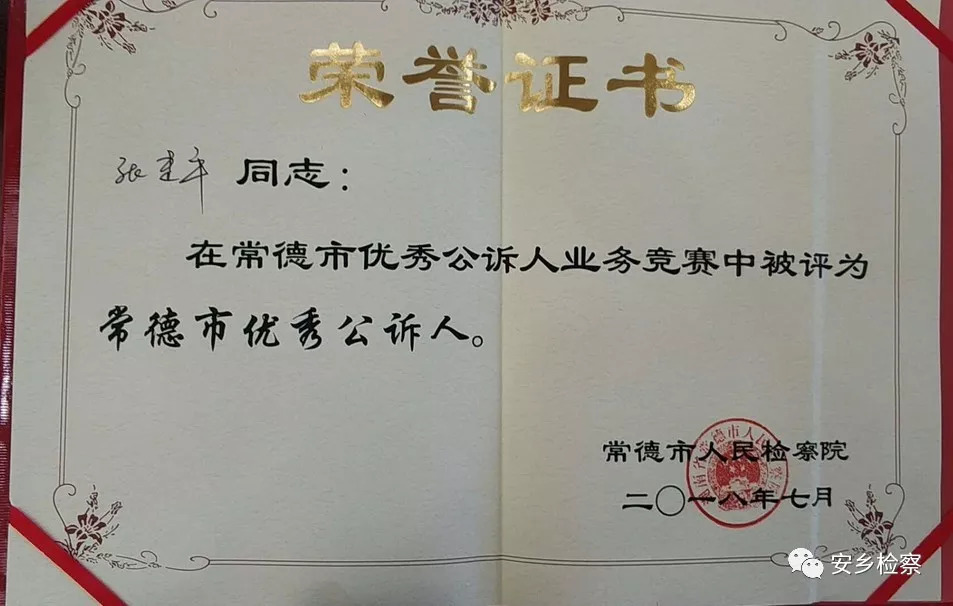 荣誉证书
张建平 同志：
在常德市优秀公诉人业务竞赛中被评为
常德市优秀公诉人。
常德市人民检察院
二〇一八年七月
安乡检察